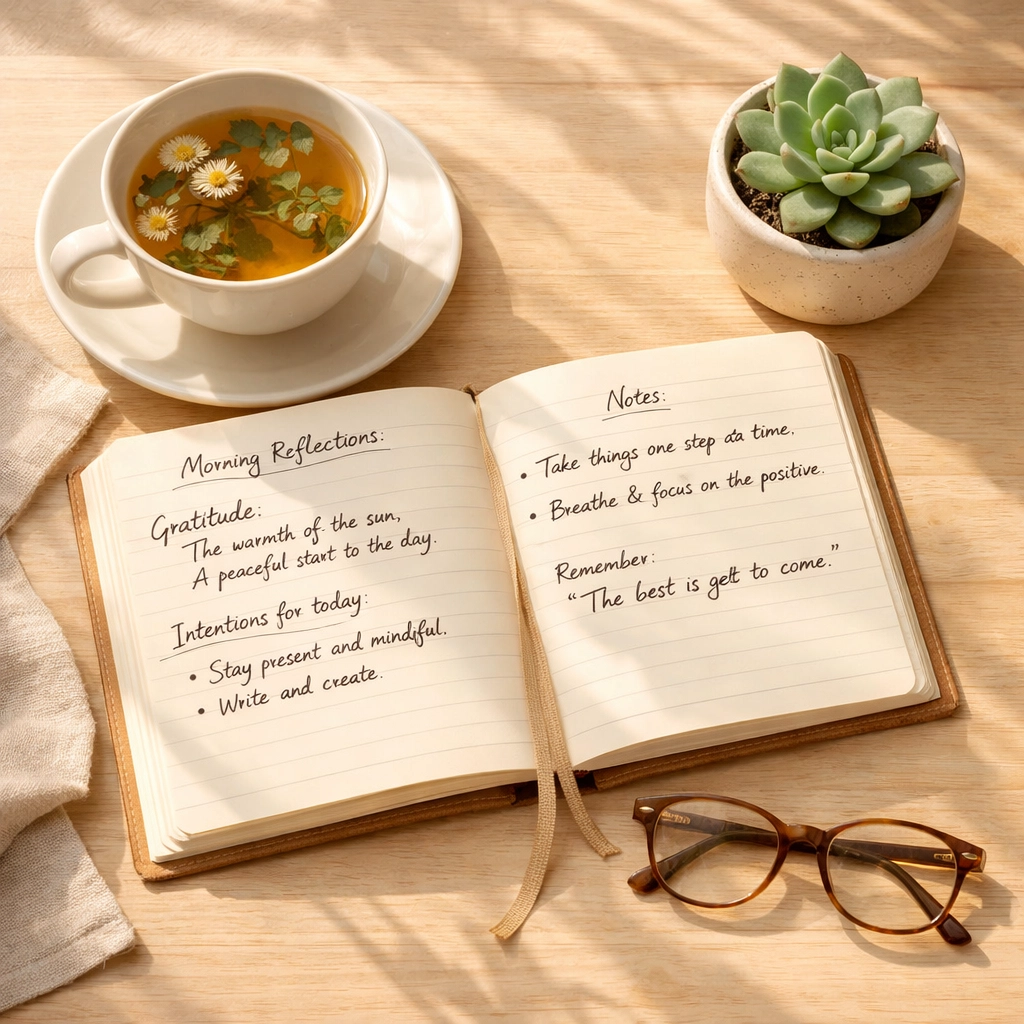 Morning Reflections:
Gratitude:
The warmth of the sun,
A peaceful start to the day.
Intentions for today:
• Stay present and mindful.
• Write and create.
Notes:
• Take things one step a time.
• Breathe & focus on the positive.
Remember:
“The best is to come.”